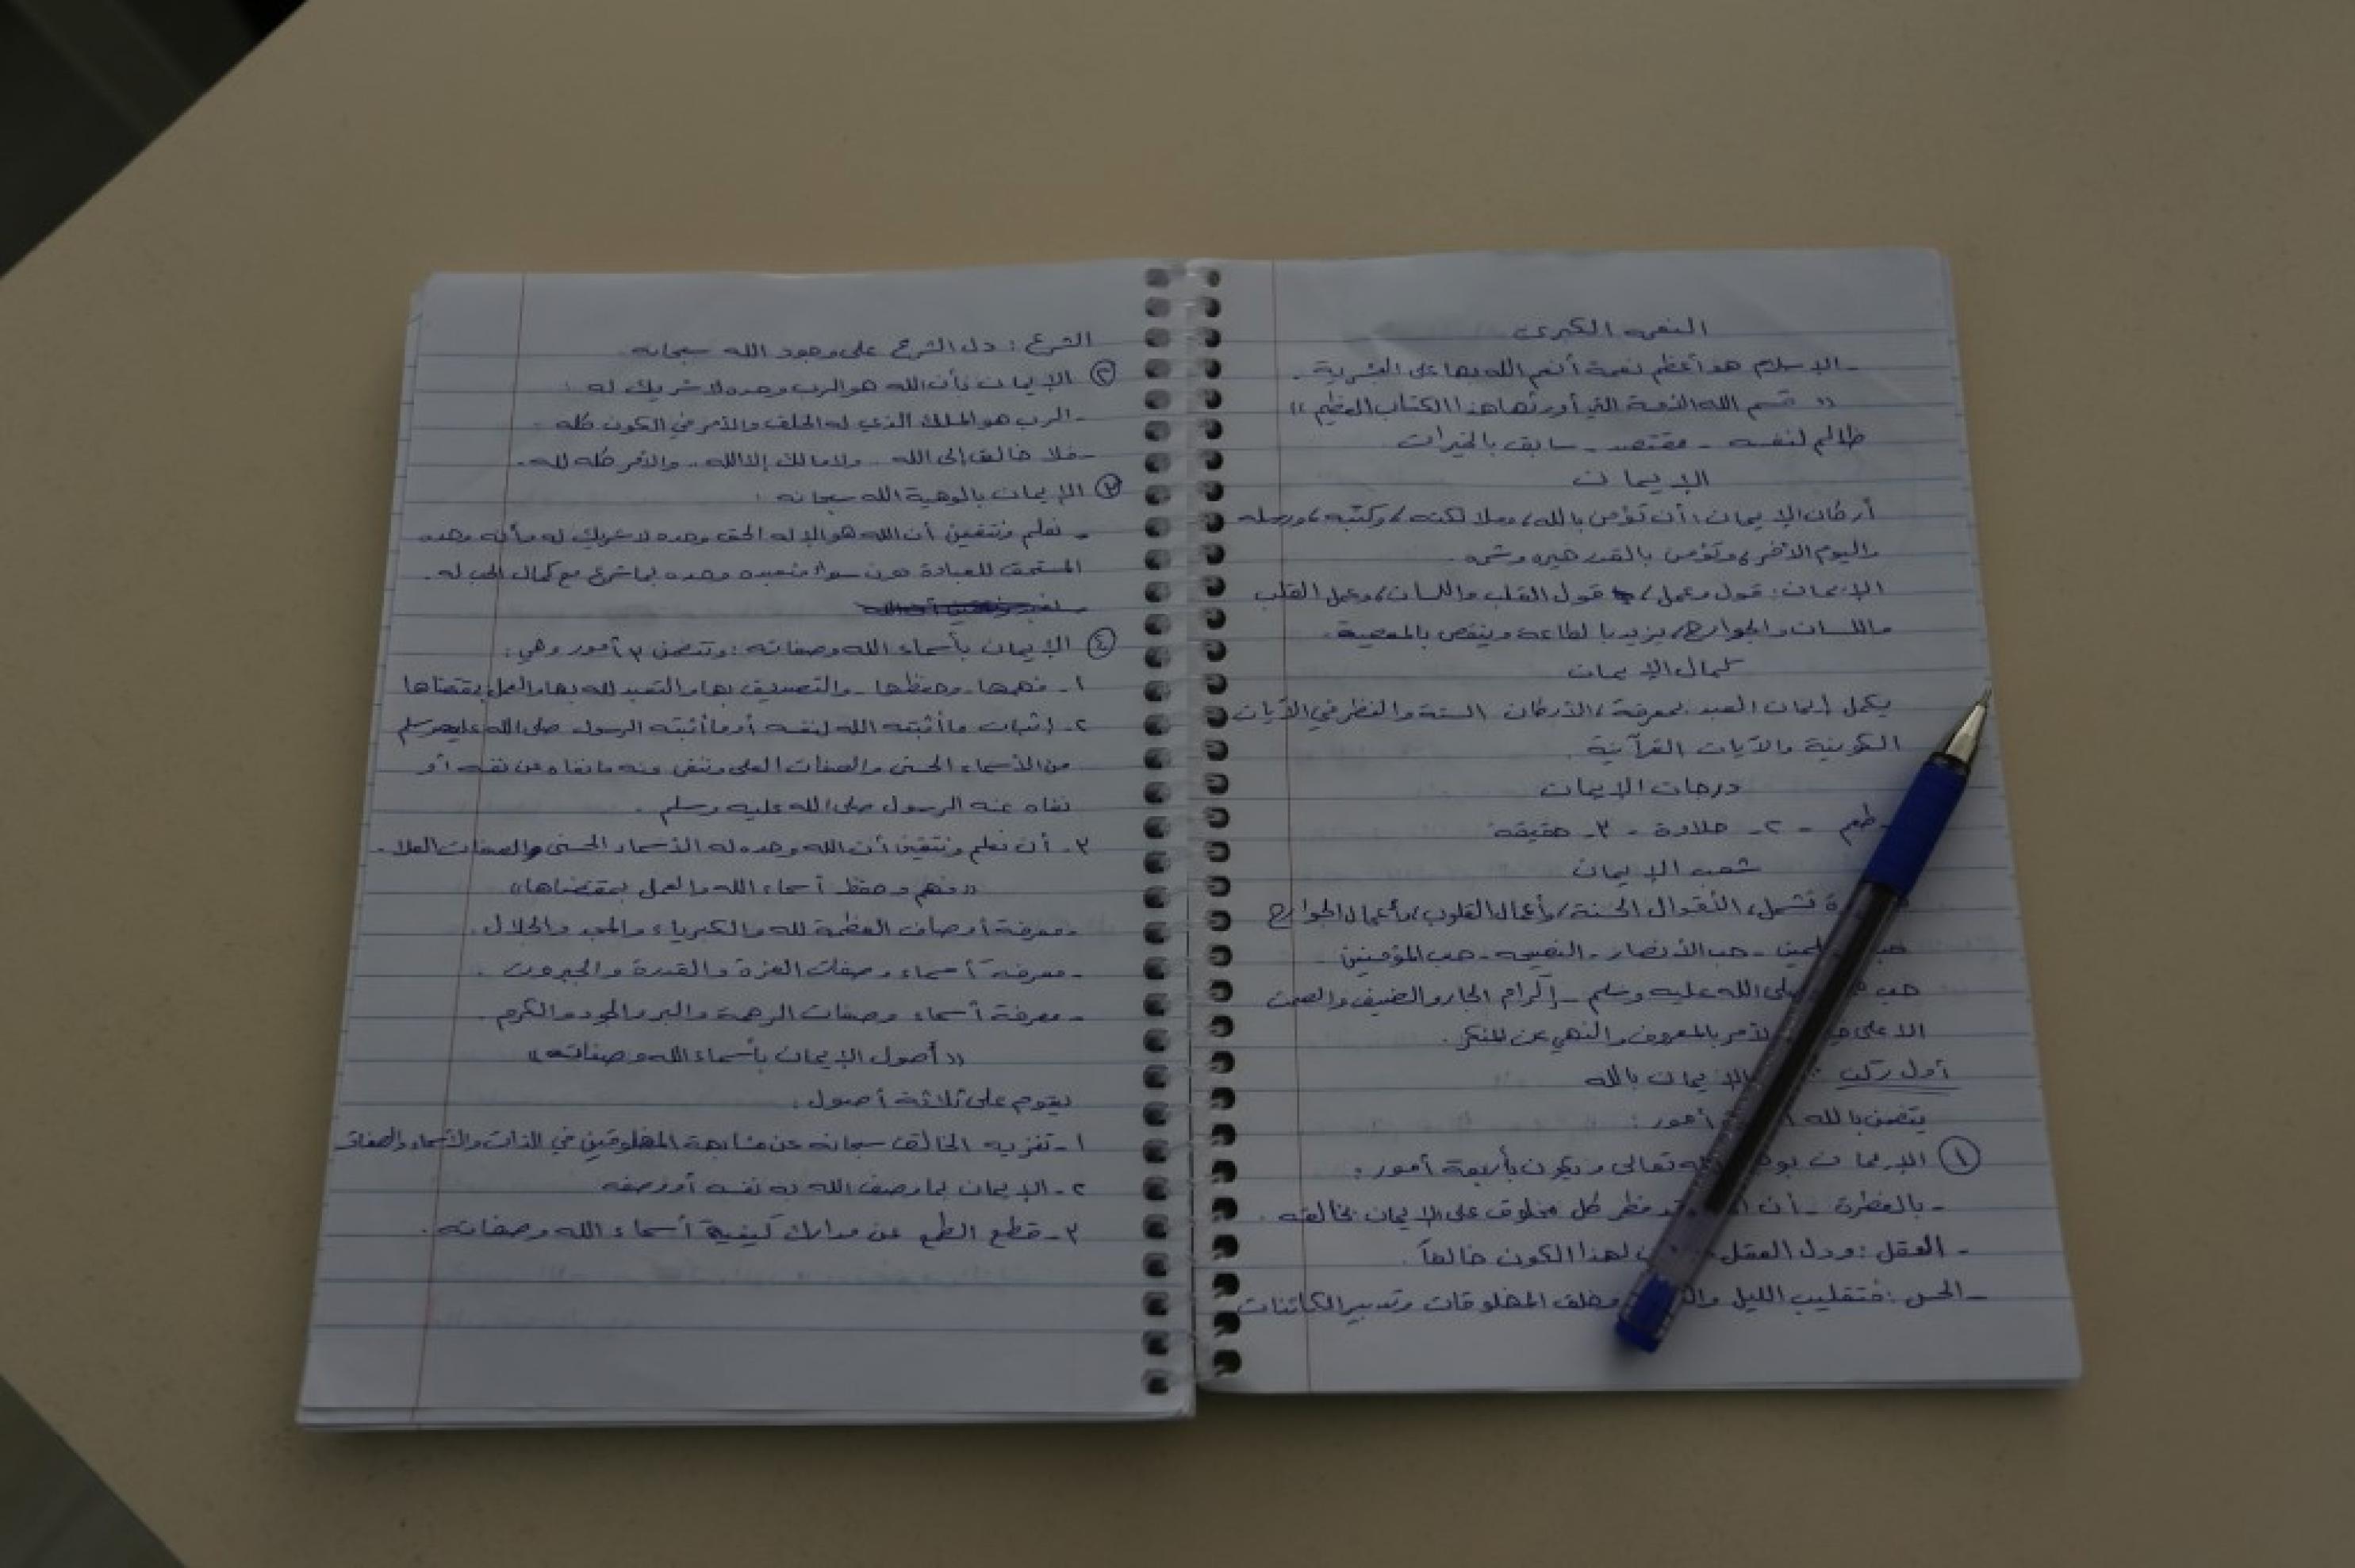 النعمه الكبرى
- الإسلام هو أعظم نعمة أنعم الله بها على البشرية .
(( قسم الله الأمة التي أورثها هذا الكتاب العظيم ))
ظالم لنفسه - مقتصد - سابق بالخيرات
الإيمان
أركان الإيمان : أن تؤمن بالله ، وملائكته ، وكتبه ، ورسله
واليوم الآخر ، وتؤمن بالقدر خيره وشره .
الإيمان : قول وعمل ، قول القلب واللسان ، وعمل القلب
واللسان والجوارح ، يزيد بالطاعة وينقص بالمعصية .
كمال الإيمان
يكمل إيمان العبد بمعرفة ، الأركان الستة والنظر في الآيات
الكونية والآيات القرآنية .
درجات الإيمان
طعم - ٢- حلاوة - ٣- حقيقة
شعب الإيمان
تشمل ، الأقوال الحسنة ، وأعمال القلوب ، وأعمال الجوارح
حب - حب الأنصار - النصيحه - حب المؤمنين
حب الله عليه وسلم - إكرام الجار والضيف والصمت
الا على بالمعروف والنهي عن المنكر .
أول ركن : الإيمان بالله
يتضمن بالله أمور :
① الإيمان تعالى ويكون بأربعة أمور :
- بالفطرة - أن فطر كل مخلوق على الإيمان بخالقه .
- العقل : ودل العقل لهذا الكون خالقاً .
- الحس : فتقليب الليل وخلق المخلوقات وتدبير الكائنات
الشرع : دل الشرع على وجود الله سبحانه
② الإيمان بأن الله هو الرب وحده لا شريك له :
- الرب هو الملك الذي له الخلق والأمر في الكون كله .
- فلا خالق إلى الله .. ولا مالك إلا الله .. والأمر كله لله .
③ الإيمان بالوهية الله سبحانه :
- نعلم ونتيقين أن الله هو الإله الحق وحده لا شريك له وأنه وحده
المستحق للعبادة دون سواه فنعبده وحده بما شرع مع كمال الحب له .
④ الإيمان بأسماء الله وصفاته : وتتضمن ٣ أمور وهي :
١- فهمها - وحفظها - والتصديق بها والتعبد لله بها والعمل بمقتضاها
٢- إثبات ما أثبته الله لنفسه أو ما أثبته الرسول صلى الله عليه وسلم
من الأسماء الحسنى والصفات العلى وننفي عنه ما نفاه عن نفسه أو
نفاه عنه الرسول صلى الله عليه وسلم .
٣- أن نعلم ونتيقين أن الله وحده له الأسماء الحسنى والصفات العلا .
(( فهم وحفظ أسماء الله والعمل بمقتضاها ))
- معرفة أوصاف العظمة لله والكبرياء والمجد والجلال .
- معرفة أسماء وصفات العزة والقدرة والجبروت .
- معرفة أسماء وصفات الرحمة والبر والجود والكرم .
(( أصول الإيمان بأسماء الله وصفاته ))
يقوم على ثلاثة أصول :
١- تنزيه الخالق سبحانه عن مشابهة المخلوقين في الذات والأسماء والصفات
٢- الإيمان بما وصف الله به نفسه أو وصفه
٣- قطع الطمع عن مدارك كيفية أسماء الله وصفاته .